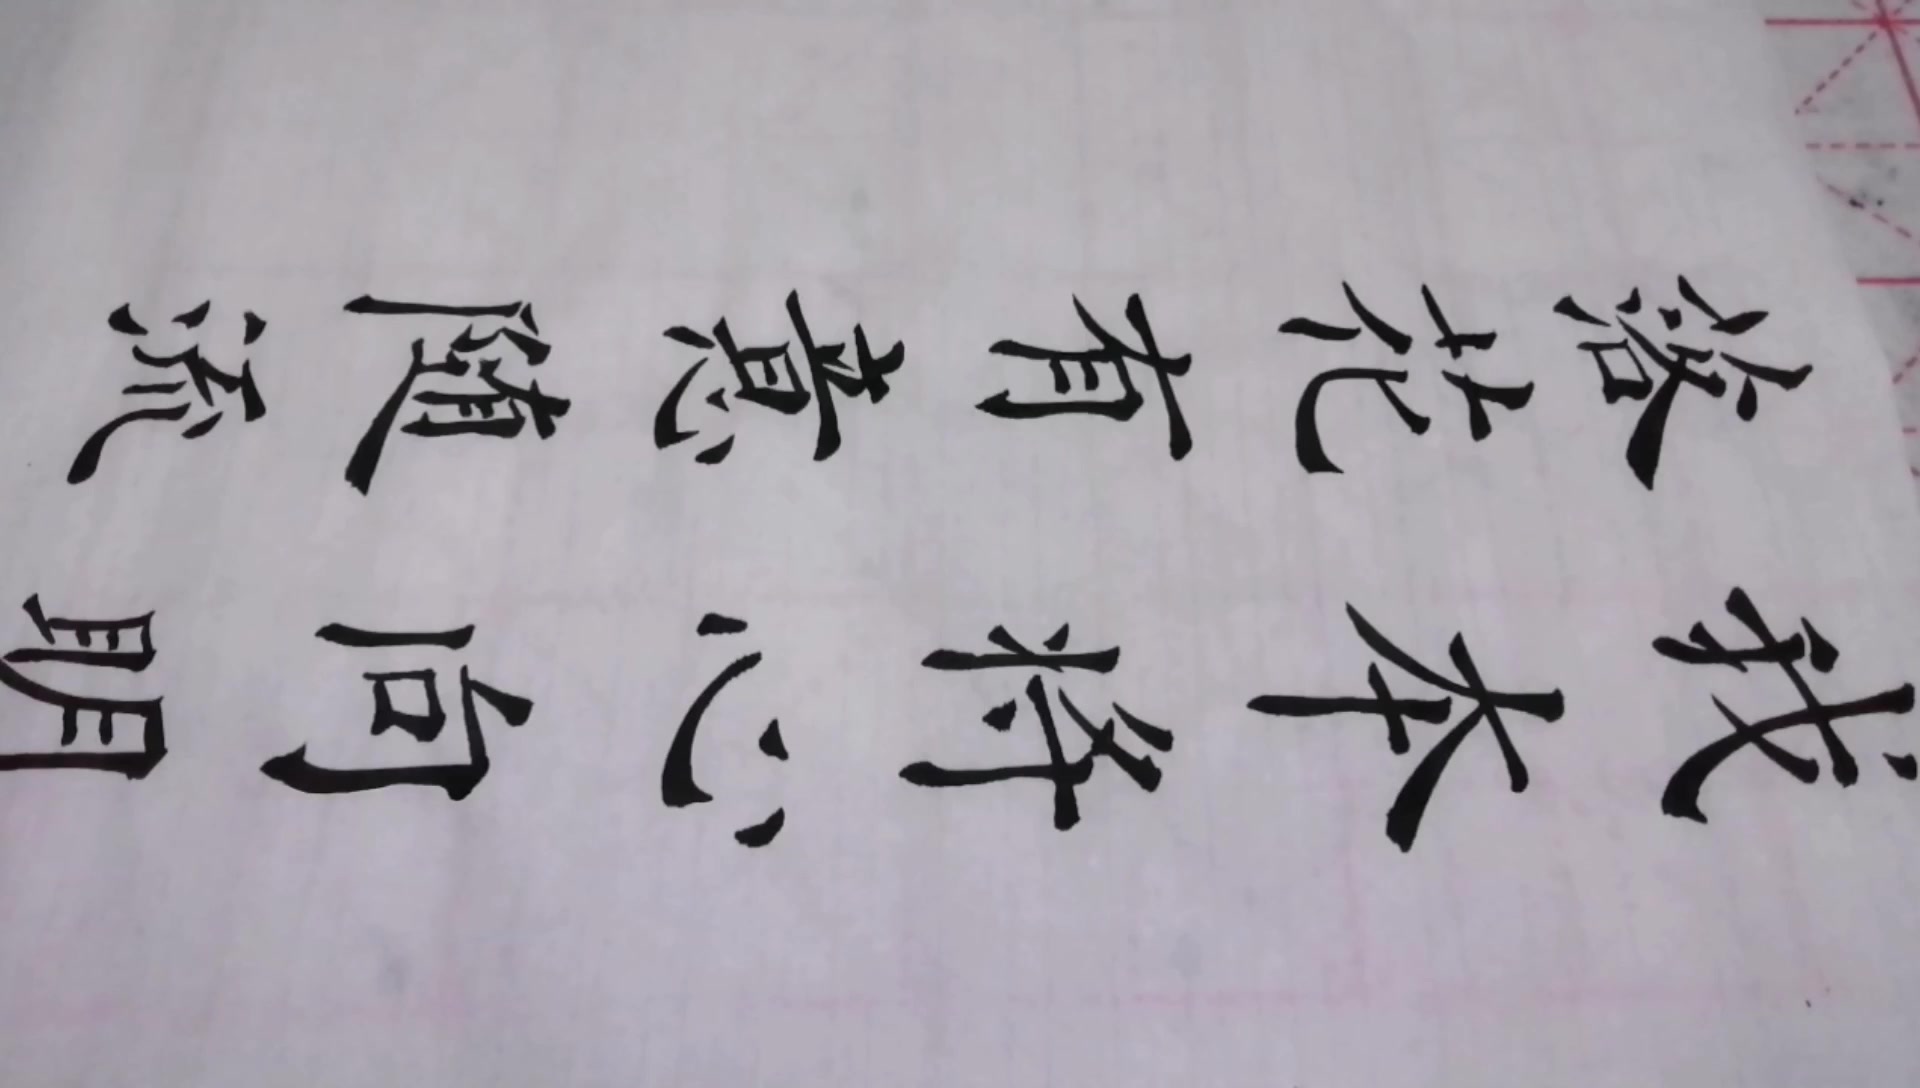 我本将心向明
落花有意随流